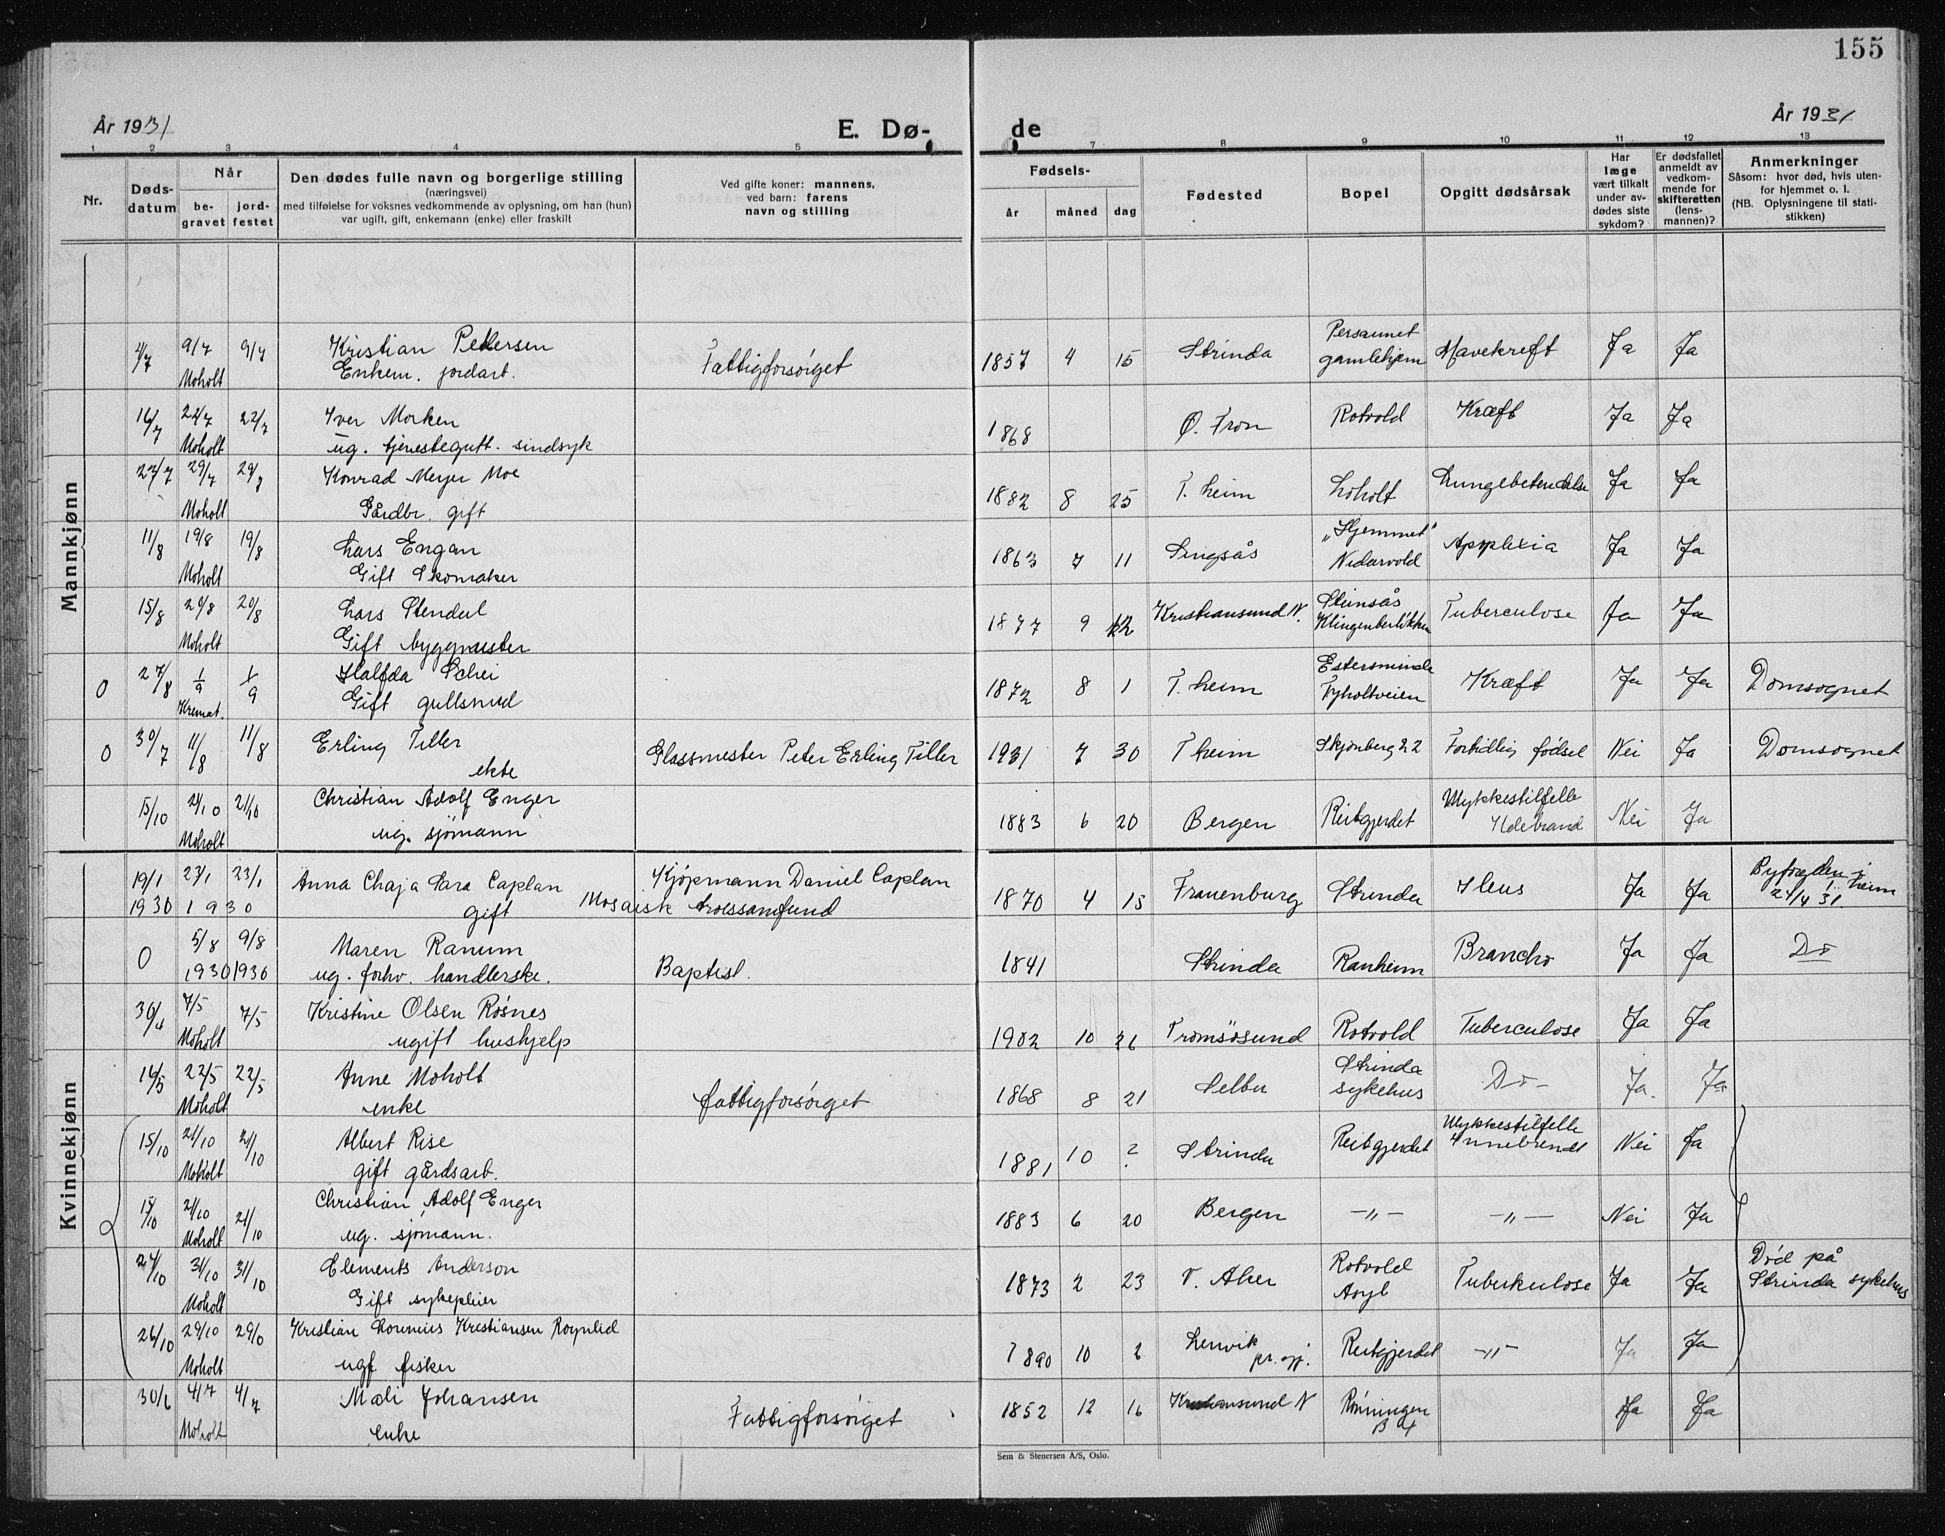 155
År 1931
E. Dø-
de
År 1931
1 2 3 4 5 7 8 9 10 11 12 13
Nr.
Døds-
datum
Når
be-
gravet
jord-
festet
Den dødes fulle navn og borgerlige stilling
(næringsvei)
med tilføielse for voksnes vedkommende av oplysning, om han (hun)
var ugift, gift, enkemann (enke) eller fraskilt
Ved gifte koner: mannens,
ved barn: farens
navn og stilling
Fødsels-
år måned dag
Fødested
Bopel
Opgitt dødsårsak
Har
læge
vært tilkalt
under av-
dødes siste
sykdom?
Er dødsfallet
anmeldt av
vedkom-
mende for
skifteretten
(lens-
mannen)?
Anmerkninger
Såsom: hvor død, hvis uten-
for hjemmet o. l.
(NB. Oplysningene til stati-
stikken)
Mannkjønn
9/7 9/7 Kristian Pedersen
Moholt Enkem. jordarb. Fattigforsørget 1857 4 15 Strinda Persaunet gamlehjem Mavekreft Ja Ja
16/7 22/7 22/7 Iver Morken
Moholt ug. tjenestegutt. sindsyk 1868 Ø. Fron Rotvold Kræft Ja Ja
27/7 29/7 29/7 Konrad Meyer Moe
Moholt Gårdbr. gift 1882 8 25 T.heim Loholt Lungebetendelse Ja Ja
11/8 19/8 19/8 Lars Engan
Moholt Gift Skomaker 1863 7 11 Singsås "Hjemmet" Nidarvold Apoplexia Ja Ja
15/8 20/8 20/8 Lars Stendal
Moholt Gift byggmester 1877 9 Kristiansund N. Steinsås Tuberculose Ja Ja
0 27/8 1/9 1/9 Halfdan Schei
Kremat. Gift gullsmed 1872 8 1 T.heim Estersminde Tyholtveien Kræft Ja Ja Domsognet
0 30/7 11/8 11/8 Erling Tiller
ekte Glassmester Peter Erling Tiller 1931 7 30 T.heim Skjønberg 22 Fortidlig fødsel Nei Ja Domsognet
15/10 21/10 21/10 Christian Adolf Enger
Moholt ug. sjømann 1883 6 20 Bergen Reitgjerdet Ulykkestilfelle Ildebrand Nei Ja
Kvinnekjønn
19/1 23/1 23/1 Anna Chaja Sara Caplan Kjøpmann Daniel Caplan
1930 1930 gift Mosaisk trossamfund 1870 4 15 Frauenburg Strinda Ileus Ja Ja Byfogden i T.heim 21/4 31.
0 5/8 9/8 Maren Ranum
1930 1930 ug. forhv. handlerske. Baptist. 1841 Strinda Ranheim Broncho Ja Ja Do
30/4 7/5 7/5 Kristine Olsen Røsnes
Moholt ugift hushjelp 1902 10 26 Tromsøsund Rotvold Tuberculose Ja Ja
16/5 22/5 22/5 Anne Moholt
Moholt enke Fattigforsørget 1868 8 21 Selbu Strinda sykehus Do- Ja. Ja
15/10 21/10 21/10 Albert Rise
Moholt gift gårdsarb. 1881 10 ? Strinda Reitgjerdet Ulykkestilfelle Innebrendt Nei Ja
15/10 21/10 21/10 Christian Adolf Enger
Moholt ug. sjømann. 1883 6 20 Bergen -„- -„- Nei Ja
27/10 31/10 31/10 Elements Anderson
Moholt Gift sykepleier 1873 2 23 V. Aker Rotvold Asyl Tuberkulose Ja Ja Død på Strinda sykehus
26/10 29/10 29/10 Kristian Lorenius Kristiansen
Moholt ugf fisker 1890 10 2 Lenvik Reitgjerdet -„- Ja Ja
30/6 4/7 4/7 Mali Johansen
Moholt enke Fattigforsørget 1852 12 16 Kristiansund N Rønningen Ja Ja
Sem & Stenersen A/S, Oslo.